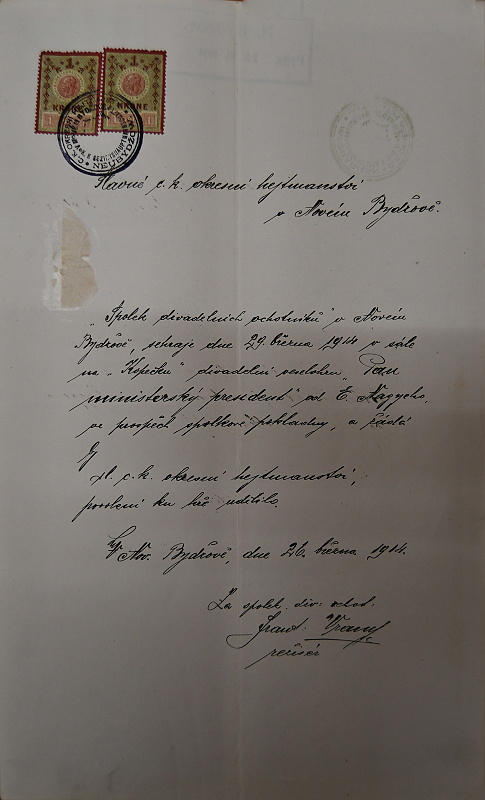 1 1
KRONE KRONE
Slavné c. k. okresní hejtmanství
v Novém Bydžově.
„Spolek divadelních ochotníků" v Novém
Bydžově, sehraje dne 29. března 1914 v sále
na „Kopečku" divadelní veselohru „Pan
ministerský president" od E. Nagyeho,
ve prospěch spolkové pokladny, a žádá
by
sl. c. k. okresní hejtmanství,
povolení ku hře udělilo.
V Nov. Bydžově, dne 26. března 1914.
Za spolek. div. ochot.
Frant.
režisér